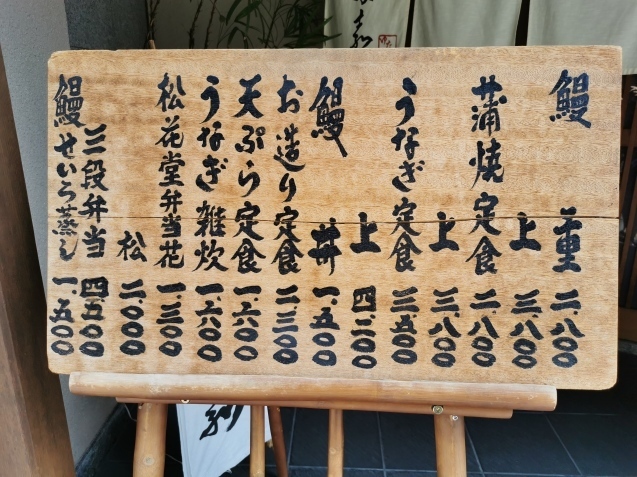 鰻重 二、八〇〇
上 三、八〇〇
蒲焼定食 二、八〇〇
上 三、八〇〇
うなぎ定食 三、五〇〇
上 四、二〇〇
鰻丼 一、五〇〇
お造り定食 二、三〇〇
天ぷら定食 一、六〇〇
うなぎ雑炊 一、六〇〇
松花堂弁当花 一、三〇〇
松 二、〇〇〇
三段弁当 四、五〇〇
鰻せいろ蒸し 一、五〇〇